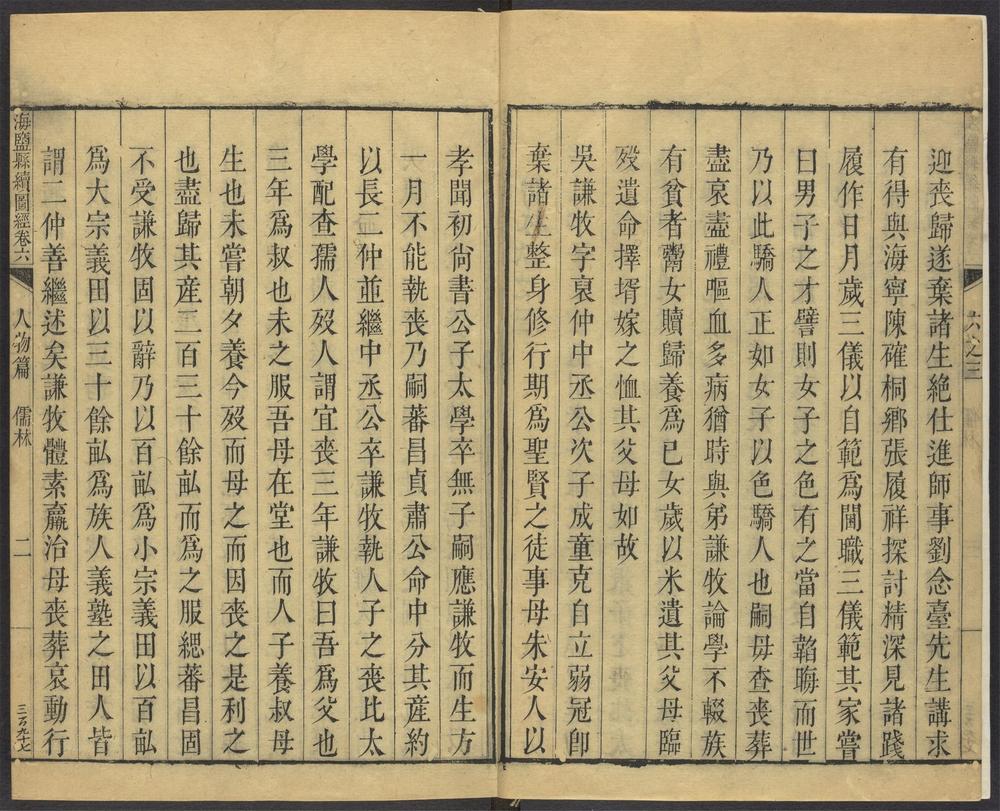 迎喪歸遂棄諸生絶仕進師事劉念臺先生講求
有得與海寧陳確桐鄉張履祥探討精深見諸踐
履作日月歲三儀以自範爲閫職三儀範其家嘗
曰男子之才譬則女子之色有之當自韜晦而世
乃以此驕人正如女子以色驕人也嗣母查喪葬
盡哀盡禮嘔血多病猶時與弟謙牧論學不輟族
有貧者鬻女贖歸養爲已女歲以米遺其父母臨
歿遺命擇壻嫁之恤其父母如故
吳謙牧字裒仲中丞公次子成童克自立弱冠卽
棄諸生整身修行期爲聖賢之徒事母朱安人以
六之三
孝聞初尙書公子太學卒無子嗣應謙牧而生方
一月不能執喪乃嗣蕃昌貞肅公命中分其產約
以長二仲並繼中丞公卒謙牧執人子之喪比太
學配查孺人歿人謂宜喪三年謙牧曰吾爲父也
三年爲叔也未之服吾母在堂也而人子養叔母
生也未嘗朝夕養今歿而母之而因喪之是利之
也盡歸其產二百三十餘畝而爲之服緦蕃昌固
不受謙牧固以辭乃以百畝爲小宗義田以百畝
爲大宗義田以三十餘畝爲族人義塾之田人皆
謂二仲善繼述矣謙牧體素羸治母喪葬哀動行
海鹽縣續圖經卷六 人物篇 儒林 二